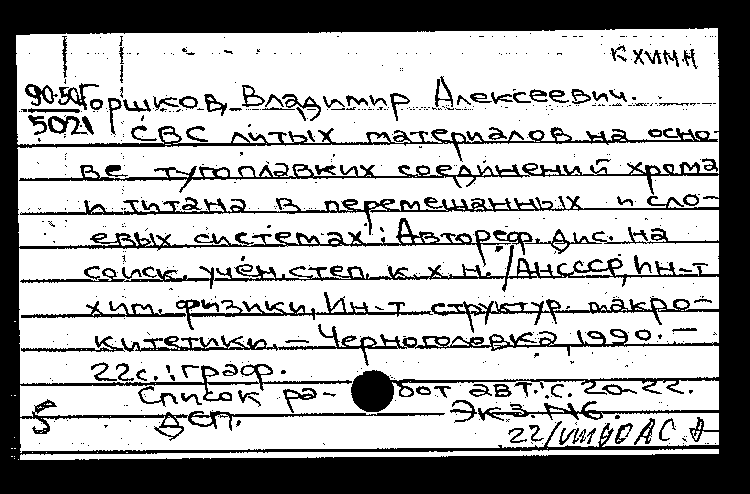 К ХИМ.Н
90-50
5021
Горшков, Владимир Алексеевич.
СВС литых материалов на осно-
ве тугоплавких соединений хрома
и титана в перемешанных и сло-
евых системах : Автореф. дис. на
соиск. учён. степ. к. х. н. / АН СССР, Ин-т
хим. физики, Ин-т структур. макро-
китетики. – Черноголовка, 1990. –
22 с. : граф.
Список ра-бот авт.: с. 20-22.
5 ДСП. Экз. №6.
22/VIII 90 АС